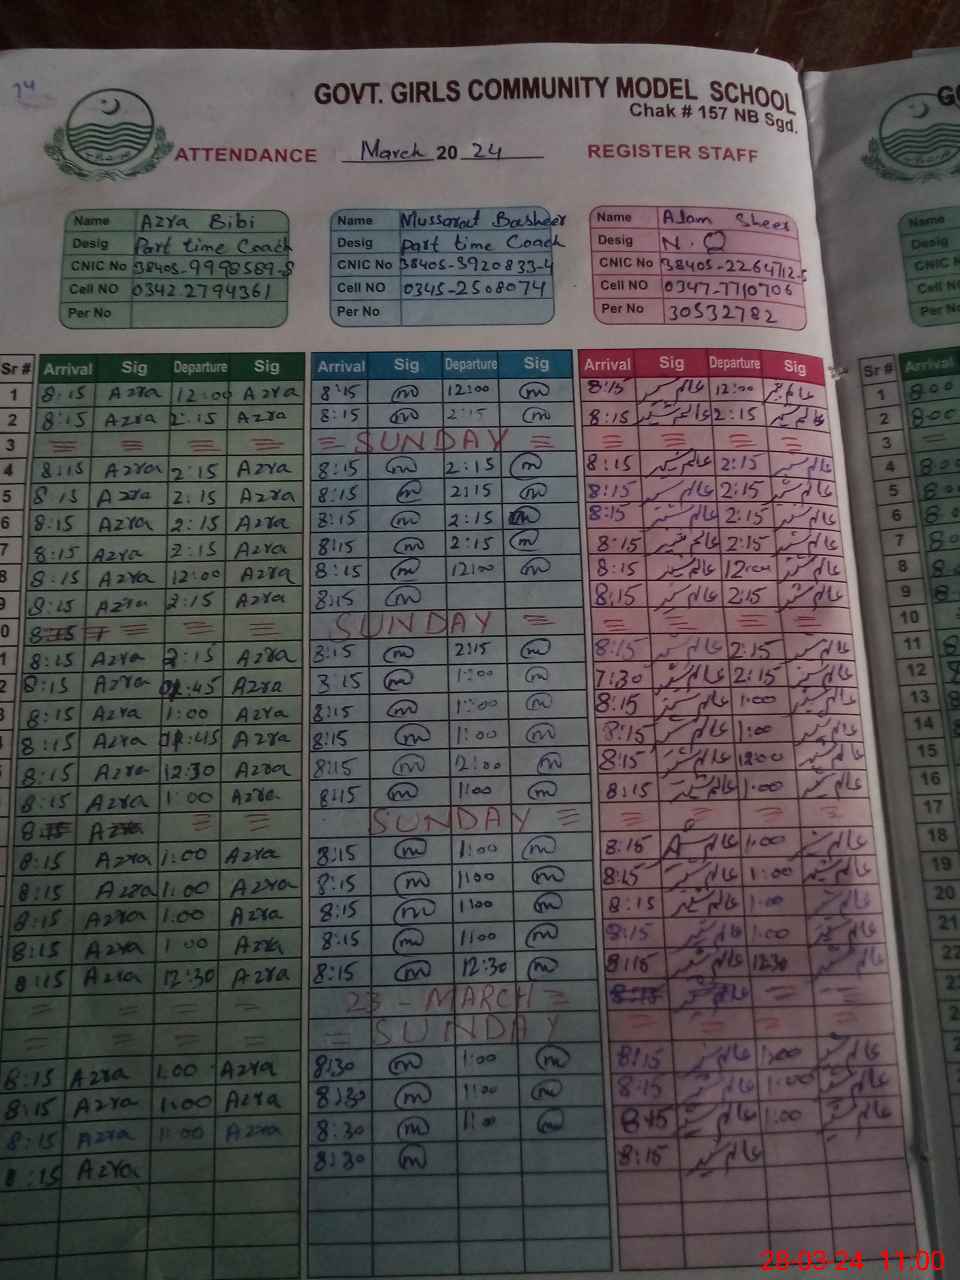 14
GOVT. GIRLS COMMUNITY MODEL SCHOOL
Chak # 157 NB Sgd.
ATTENDANCE March 20 24 REGISTER STAFF
Name Azra Bibi Name Mussarat Basheer Name Alam Sheer
Desig Part time Coach Desig Part time Coach Desig N.Q
CNIC No 38405-9998589-8 CNIC No 38405-3920833-4 CNIC No 38405-2264712-5
Cell NO 0342.2794361 Cell NO 0345-2508074 Cell NO 0347-7710706
Per No Per No Per No 30532782
Sr # Arrival Sig Departure Sig Arrival Sig Departure Sig Arrival Sig Departure Sig Sr # Arrival
1 8:15 Azra 12:00 Azra 8:15 m 12:00 m 8:15 عالم شیر 12:00 عالم شیر 1 8:00
2 8:15 Azra 2:15 Azra 8:15 m 2:15 m 8:15 عالم شیر 2:15 عالم شیر 2 8:00
3 = = = = = SUNDAY = = = = = 3
4 8:15 Azra 2:15 Azra 8:15 m 2:15 m 8:15 عالم شیر 2:15 عالم شیر 4
5 8:15 Azra 2:15 Azra 8:15 m 2:15 m 8:15 عالم شیر 2:15 عالم شیر 5
6 8:15 Azra 2:15 Azra 8:15 m 2:15 m 8:15 عالم شیر 2:15 عالم شیر 6
7 8:15 Azra 2:15 Azra 8:15 m 2:15 m 8:15 عالم شیر 2:15 عالم شیر 7
8 8:15 Azra 12:00 Azra 8:15 m 12:00 m 8:15 عالم شیر 12:00 عالم شیر 8
9 8:15 Azra 2:15 Azra 8:15 m 8:15 عالم شیر 2:15 عالم شیر 9
0 8:15 = = = SUNDAY = = = = = 10
1 8:15 Azra 2:15 Azra 8:15 m 2:15 m 8:15 عالم شیر 2:15 عالم شیر 11
2 8:15 Azra 01:45 Azra 8:15 m 1:00 m 7:30 عالم شیر 2:15 عالم شیر 12
3 8:15 Azra 1:00 Azra 8:15 m 1:00 m 8:15 عالم شیر 1:00 عالم شیر 13
8:15 Azra 01:45 Azra 8:15 m 1:00 m 8:15 عالم شیر 1:00 عالم شیر 14
8:15 Azra 12:30 Azra 8:15 m 12:00 m 8:15 عالم شیر 12:00 عالم شیر 15
8:15 Azra 1:00 Azra 8:15 m 1:00 m 8:15 عالم شیر 1:00 عالم شیر 16
8:15 Azra = = SUNDAY = = = = = 17
8:15 Azra 1:00 Azra 8:15 m 1:00 m 8:15 عالم شیر 1:00 عالم شیر 18
8:15 Azra 1:00 Azra 8:15 m 1:00 m 8:15 عالم شیر 1:00 عالم شیر 19
8:15 Azra 1:00 Azra 8:15 m 1:00 m 8:15 عالم شیر 1:00 عالم شیر 20
8:15 Azra 1:00 Azra 8:15 m 1:00 m 8:15 عالم شیر 1:00 عالم شیر 21
8:15 Azra 12:30 Azra 8:15 m 12:30 m 8:15 عالم شیر 12:30 عالم شیر 22
= = = = 23 - MARCH = 8:15 عالم شیر = =
= = = = = SUNDAY = = = =
8:15 Azra 1:00 Azra 8:30 m 1:00 m 8:15 عالم شیر 1:00 عالم شیر
8:15 Azra 1:00 Azra 8:30 m 1:00 m 8:15 عالم شیر 1:00 عالم شیر
8:15 Azra 1:00 Azra 8:30 m 1:00 m 8:15 عالم شیر 1:00 عالم شیر
8:15 Azra 8:30 m 8:15 عالم شیر
28-03-24 11:00